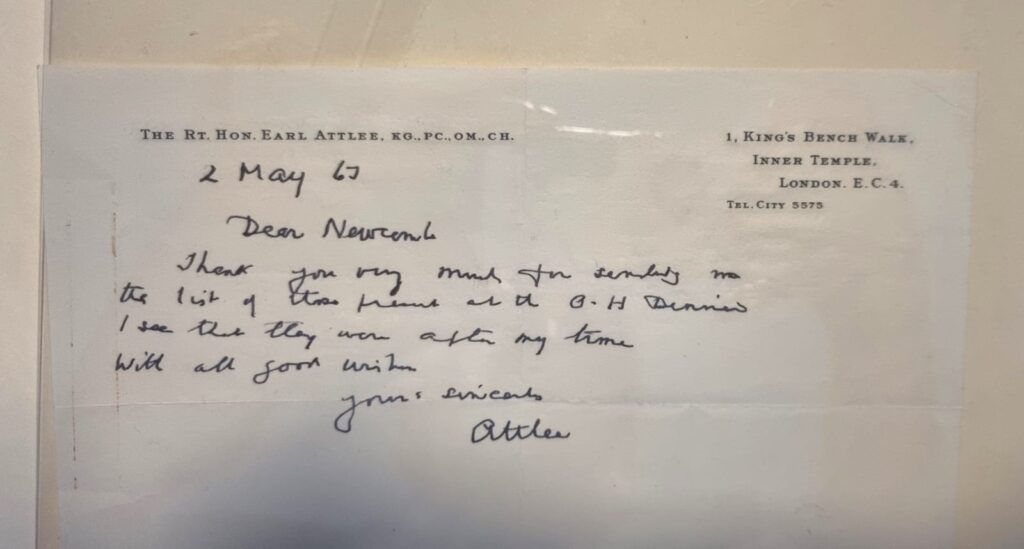 THE RT. HON. EARL ATTLEE, KG., PC., OM., CH.
1, KING'S BENCH WALK,
INNER TEMPLE,
LONDON. E.C.4.
TEL. CITY 5575
2 May 63
Dear Newcomb
Thank you very much for sending me
the list of those present at the O-H Dinner
I see that they were after my time
With all good wishes
yours sincerely
Attlee